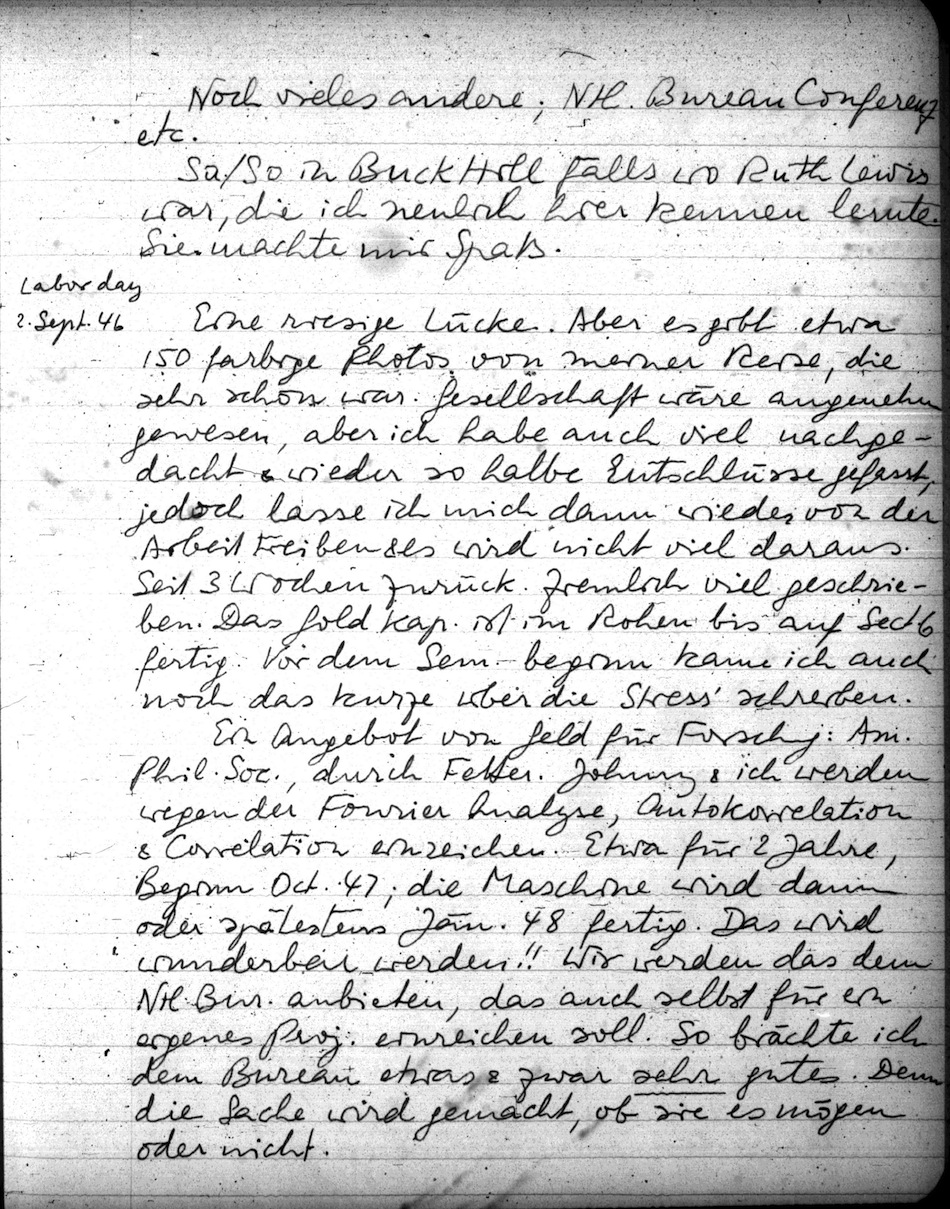 Noch vieles andere; Ntl. Bureau Conferenz
etc.
Sa/So in Buck Hill Falls wo Ruth Lewis
war, die ich neulich hier kennen lernte.
Sie machte mir Spaß.
Labor day
2. Sept. 46
Eine riesige Lücke. Aber es gibt etwa
150 farbige Photos von meiner Reise, die
sehr schön war. Gesellschaft wäre angenehm
gewesen, aber ich habe auch viel nachge-
dacht & wieder so halbe Entschlüsse gefasst,
jedoch lasse ich mich dann wieder von der
Arbeit treiben & es wird nicht viel daraus.
Seit 3 Wochen zurück. Ziemlich viel geschrie-
ben. Das Gold Kap. ist im Rohen bis auf Sect 6
fertig. Vor dem Sem.-beginn kann ich auch
noch das kurze über die 'Stress' schreiben.
Ein Angebot von Geld für Forschg: Am.
Phil. Soc., durch Fetter. Johnny & ich werden
wegen der Fourier Analyse, Autokorrelation
& Correlation einreichen. Etwa für 2 Jahre,
Beginn Oct. 47; die Maschine wird dann
oder spätestens Jan. 48 fertig. Das wird
wunderbar werden!! Wir werden das dem
Ntl Bur. anbieten, das auch selbst für ein
eigenes Proj. einreichen soll. So brächte ich
dem Bureau etwas & zwar sehr gutes. Denn
die Sache wird gemacht, ob sie es mögen
oder nicht.